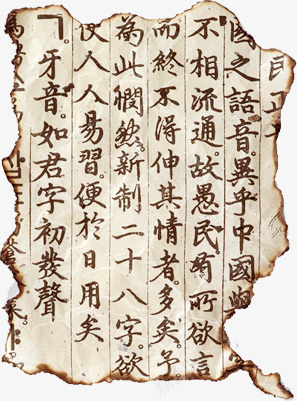 民正
國之語音。異乎中國與
不相流通。故愚民。有所欲言
而終不得伸其情者。多矣。予。
為此憫然。新制二十八字。欲
使人人易習。便於日用矣
ㄱ。牙音。如君字初發聲